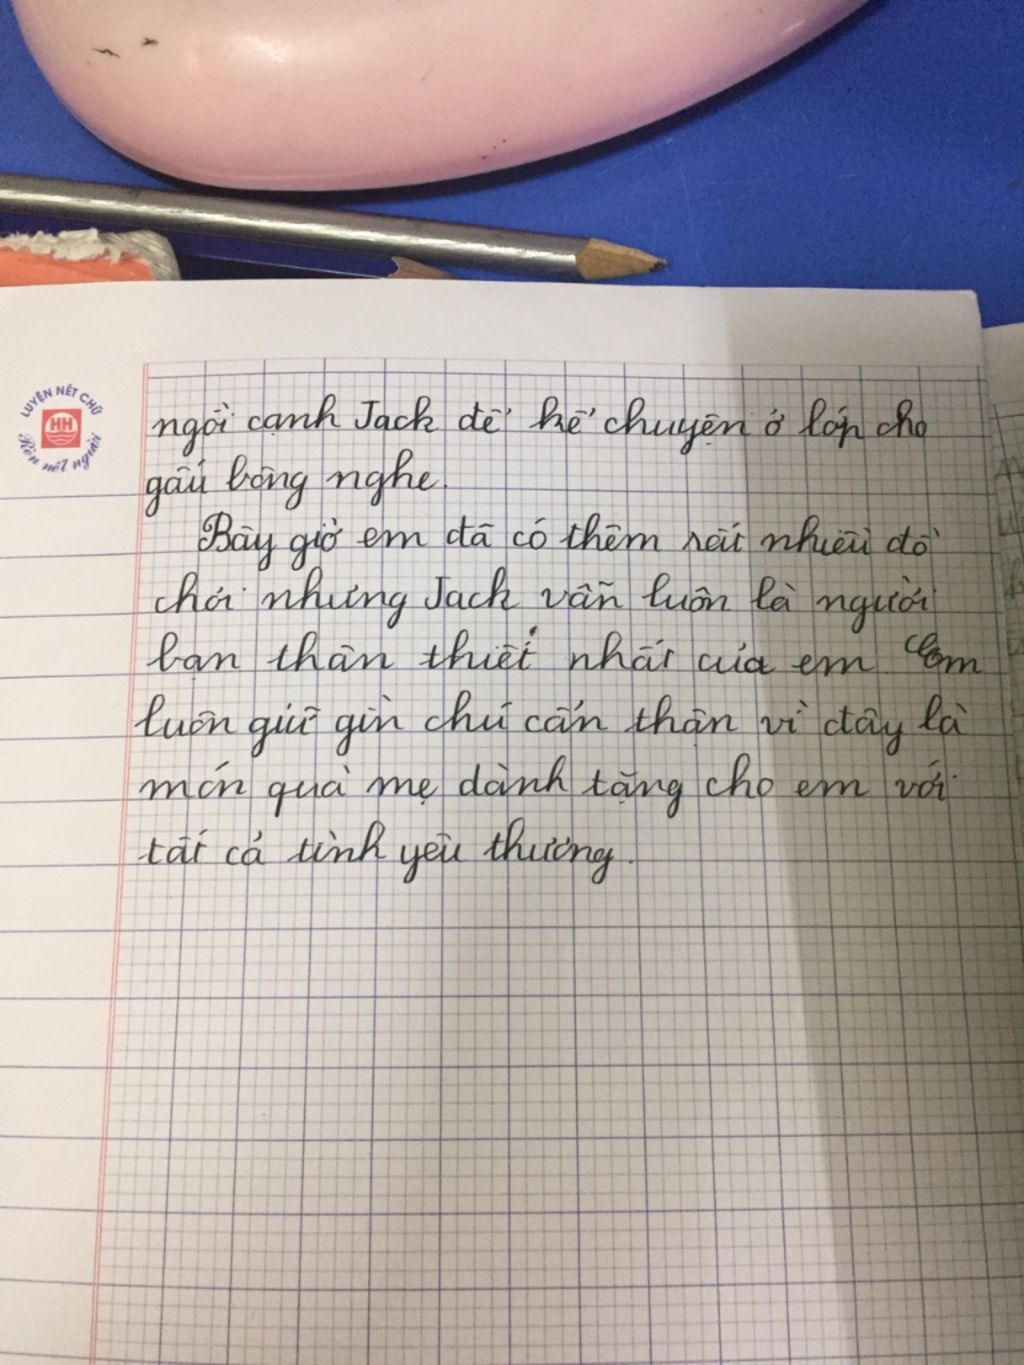 LUYỆN NÉT CHỮ
HH
Rèn nết người
ngồi cạnh Jack để kể chuyện ở lớp cho
gấu bông nghe.
Bây giờ em đã có thêm rất nhiều đồ
chơi nhưng Jack vẫn luôn là người
bạn thân thiết nhất của em. Em
luôn giữ gìn chú cẩn thận vì đây là
món quà mẹ dành tặng cho em với
tất cả tình yêu thương.